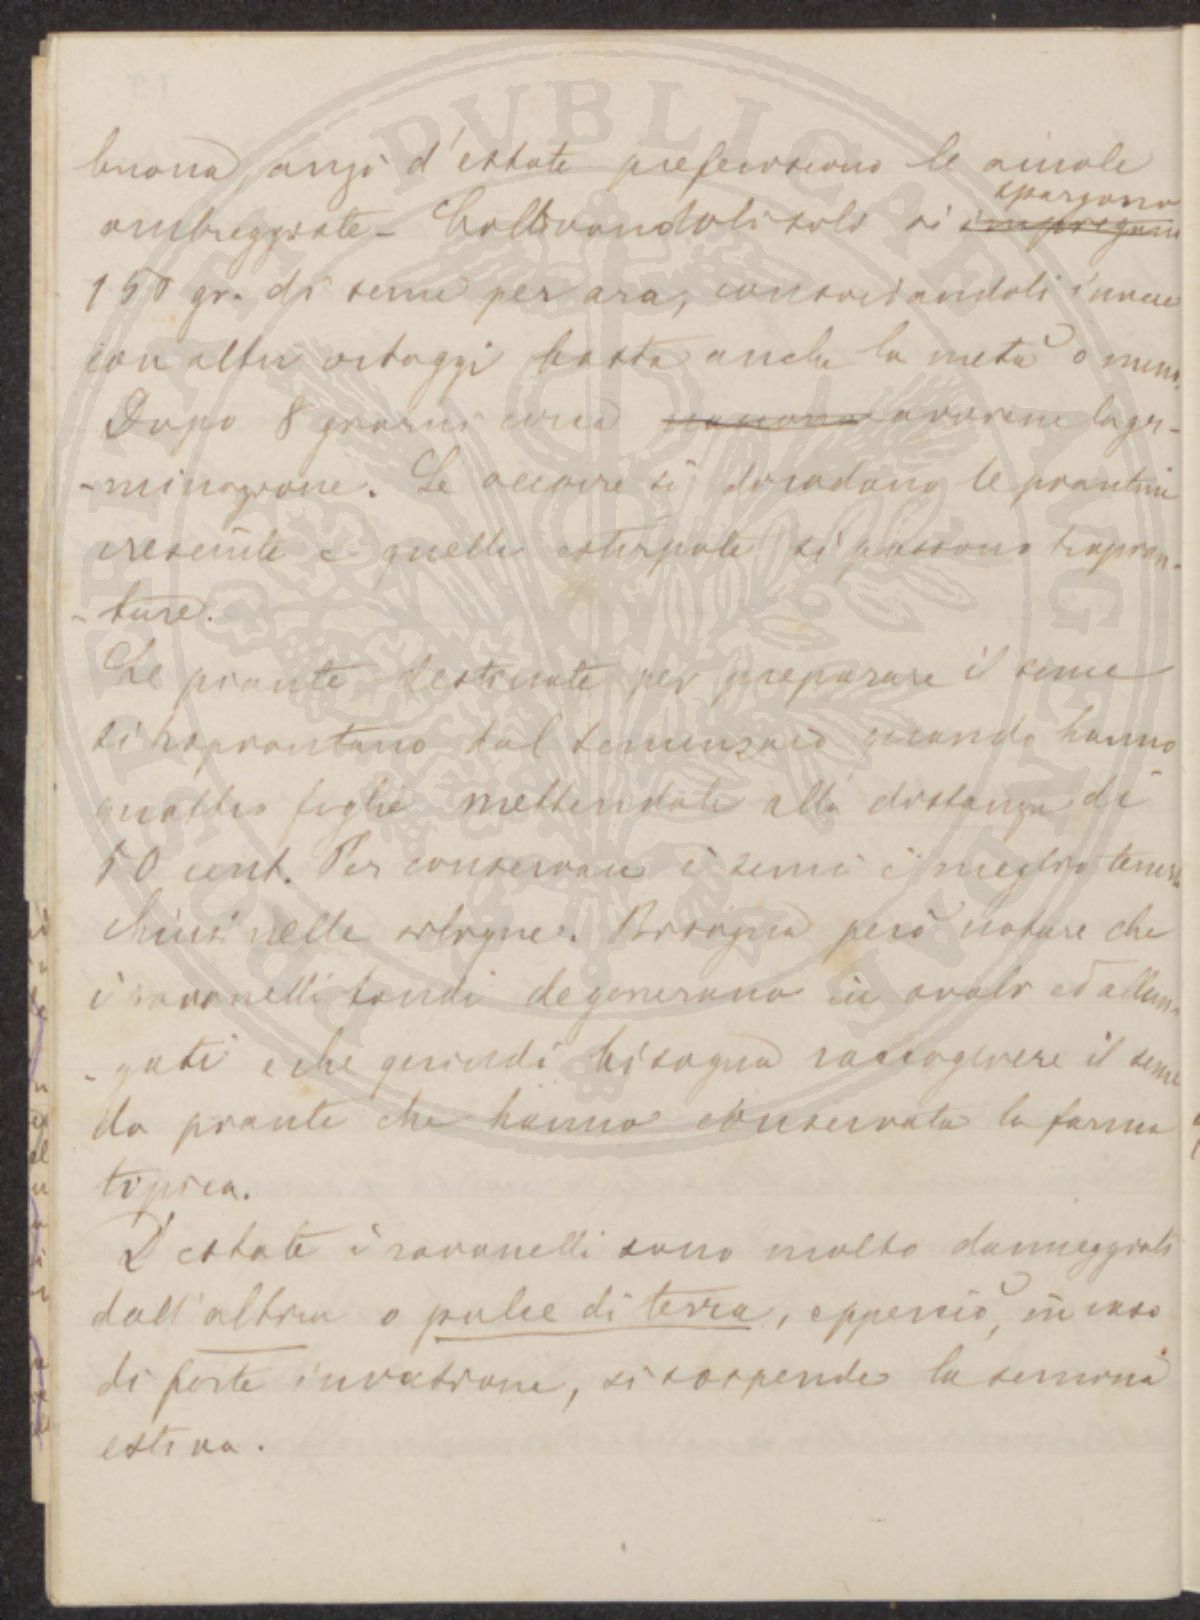 buona, anzi d'estate preferiscono le aiuole
spargono
ombreggiate - Coltivandoli soli si impiegano
150 gr. di seme per ara, consociandoli invece
con altri ortaggi basta anche la metà o meno.
Dopo 8 giorni circa avviene la ger-
-minazione. Se occorre si diradano le piantine
cresciute e quelle estirpate si possono trapian-
-tare.
Le piante destinate per preparare il seme
si trapiantano dal semenzaio quando hanno
quattro foglie mettendole alla distanza di
50 cent. Per conservare i semi è meglio tenerli
chiusi nelle silique. Bisogna però notare che
i ravanelli tondi degenerano in ovali ed allun-
-gati e che quindi bisogna raccogliere il seme
da piante che hanno conservata la forma
tipica.
D'estate i ravanelli sono molto danneggiati
dall'altica o pulce di terra, epperciò, in caso
di forte invasione, si sospende la semina
estiva.
REI PVBLICAE AVGENDAE